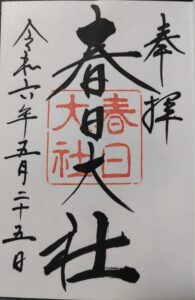 奉拝
春日大社
春日大社
令和六年五月二十五日